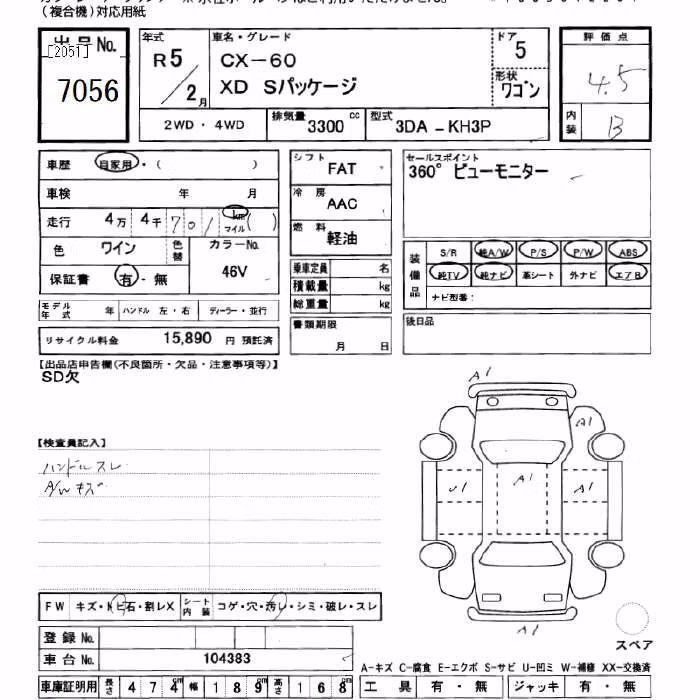 (複合機)対応用紙
出品No.
[2051]
7056
年式
R5/2月
車名・グレード
CX-60
XD Sパッケージ
ドア
5
形状
ワゴン
評価点
4.5
内装
B
2WD・4WD
排気量 3300 cc
型式 3DA-KH3P
車歴 自家用・( )
車検 年 月
走行 4万 4千 701 km マイル ( )
色 ワイン 色替
カラーNo. 46V
保証書 有・無
モデル年式 年 ハンドル 左・右 ディーラー・並行
リサイクル料金 15,890 円 預託済
シフト FAT
冷房 AAC
燃料 軽油
乗車定員 名
積載量 kg
総重量 kg
書類期限
月 日
セールスポイント
360° ビューモニター
装備品
S/R 純A/W P/S P/W ABS
純TV 純ナビ 革シート 外ナビ エアB
ナビ型番:
後日品
【出品店申告欄(不良箇所・欠品・注意事項等)】
SD欠
【検査員記入】
ハンドルスレ
A/Wキズ
A1
A1
A1
A1
A1
FW キズ・ヒビ石・割レX
シート内装 コゲ・穴・汚レ・シミ・破レ・スレ
登録No.
車台No. 104383
スペア
A-キズ C-腐食 E-エクボ S-サビ U-凹ミ W-補修 XX-交換済
車庫証明用 長さ 474cm 幅 189cm 高さ 168cm
工具 有・無 ジャッキ 有・無